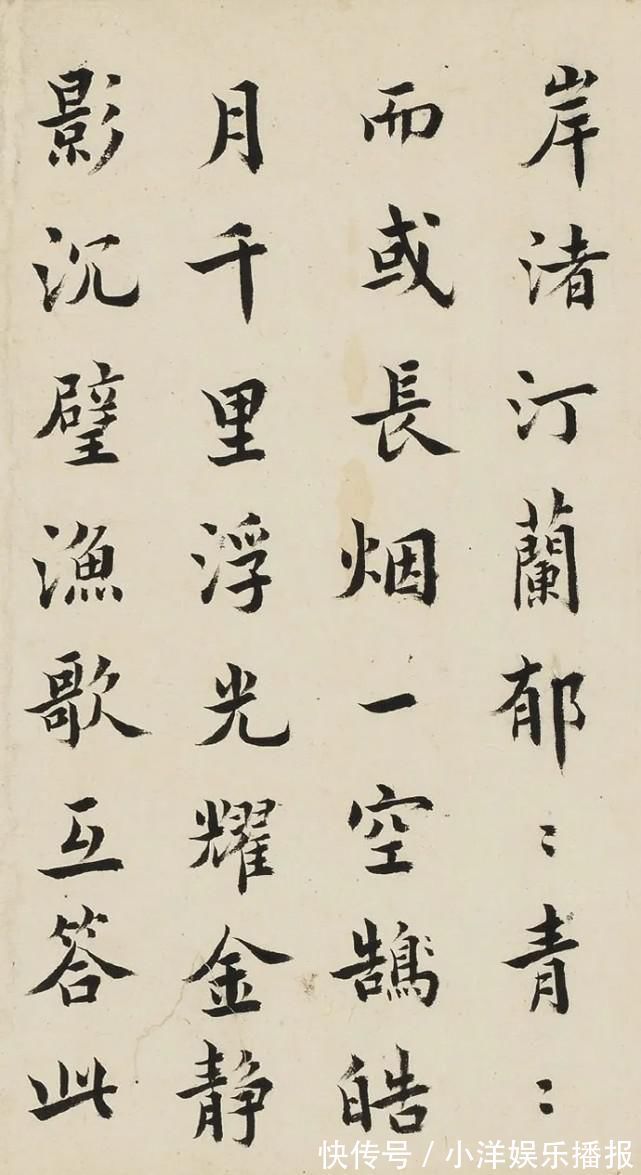 岸渚汀蘭郁〻青〻
而或長烟一空鵠皓
月千里浮光耀金静
影沉璧漁歌互答此
快传号/小洋娱乐播报